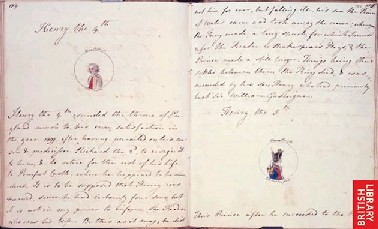 Henry the 4th
Henry the 4th ascended the throne of En=
gland much to his own satisfaction in
the year 1399, after having prevailed on his cou=
=sin & predecessor Richard the 2d to resign it
to him, & to retire for the rest of his Life
to Pomfret Castle, where he happened to be mur=
=dered. It is to be supposed that Henry was
married, since he had certainly four sons, but
it is not in my power to inform the Reader
who was his Wife. Be this as it may, he did
not live for ever, but falling ill, his son the Prince
of Wales came and took away the crown; whereupon
the King made a long speech, for which I must
refer the Reader to Shakespear's Plays, & the
Prince made a still longer. Things being thus
settled between them the King died, & was
succeeded by his son Henry who had previously
beat Sir William Gascoigne.
Henry the 5th
This Prince after he succeeded to the
BRITISH
LIBRARY